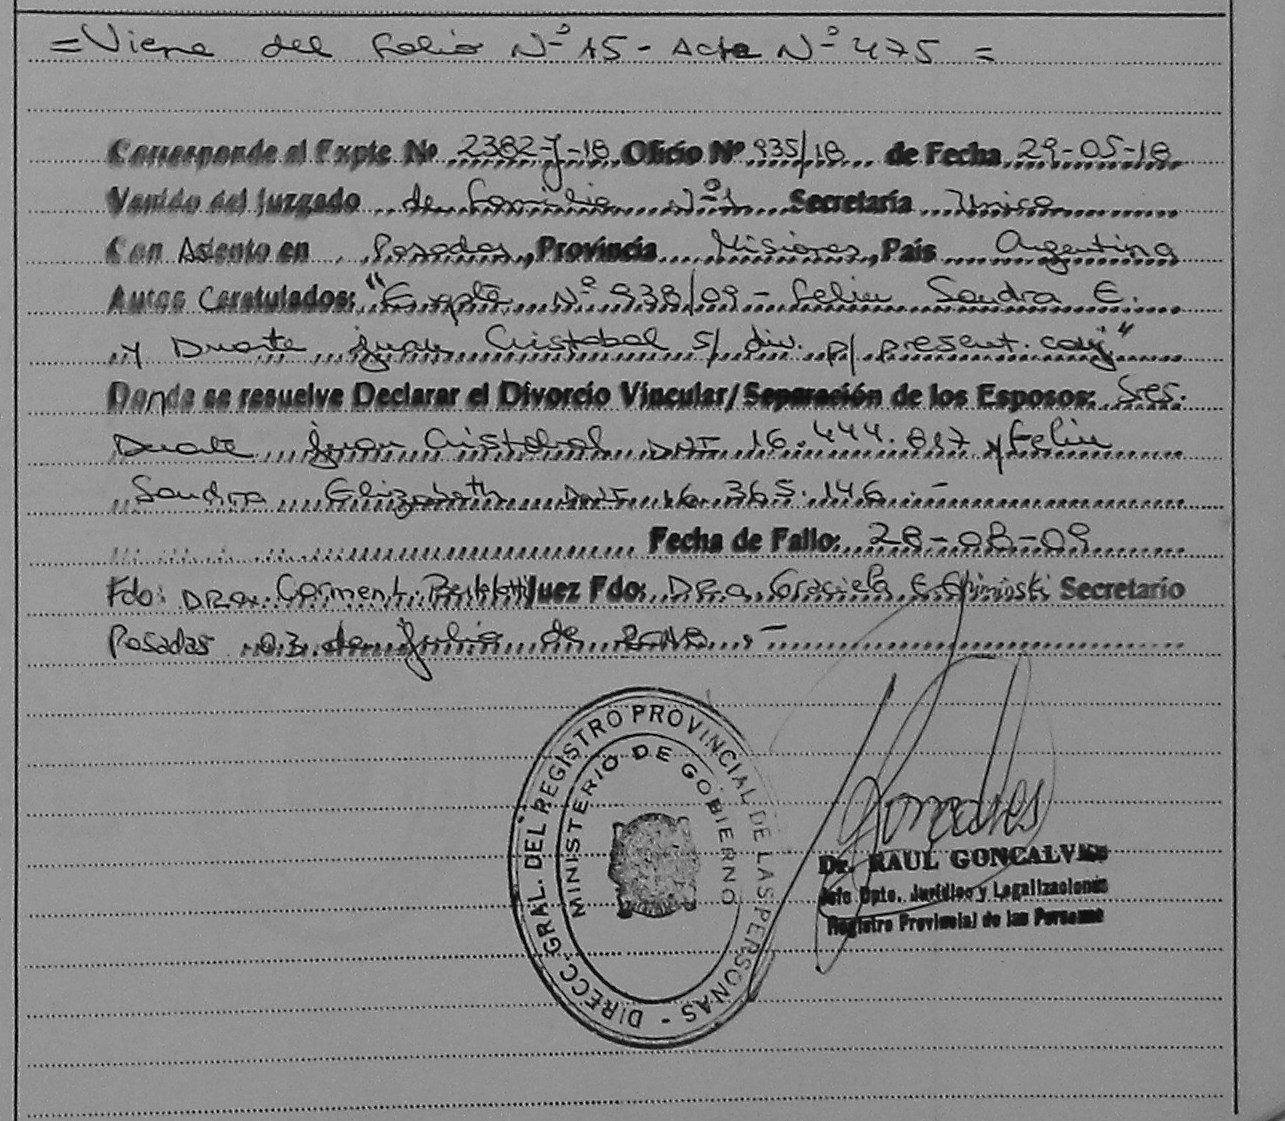 = Viene del folio Nº 15 - Acta Nº 475 =
Corresponde al Expte Nº 2382-J-18 Oficio Nº 935/18 de Fecha 29-05-18
Venido del Juzgado de Familia Nº 1 Secretaría Unica
Con Asiento en Posadas, Provincia Misiones, País Argentina
Autos Caratulados: "Expte Nº 938/09 - Feliu Sandra E.
y Duarte Juan Cristobal s/ div. p/ present. conj"
Donde se resuelve Declarar el Divorcio Vincular/Separación de los Esposos: Sres.
Duarte Juan Cristobal DNI 16.444.817 y Feliu
Sandra Elizabeth DNI 16.365.146.-
Fecha de Fallo: 28-08-09
Fdo: DRa. Carmen L. Juez Fdo: DRa. Graciela E. Secretario
Posadas 03 de Julio de 2018.-
DIRECC. GRAL. DEL REGISTRO PROVINCIAL DE LAS PERSONAS -
MINISTERIO DE GOBIERNO
Dr. RAUL GONCALVES
Jefe Dpto. Jurídico y Legalizaciones
Registro Provincial de las Personas